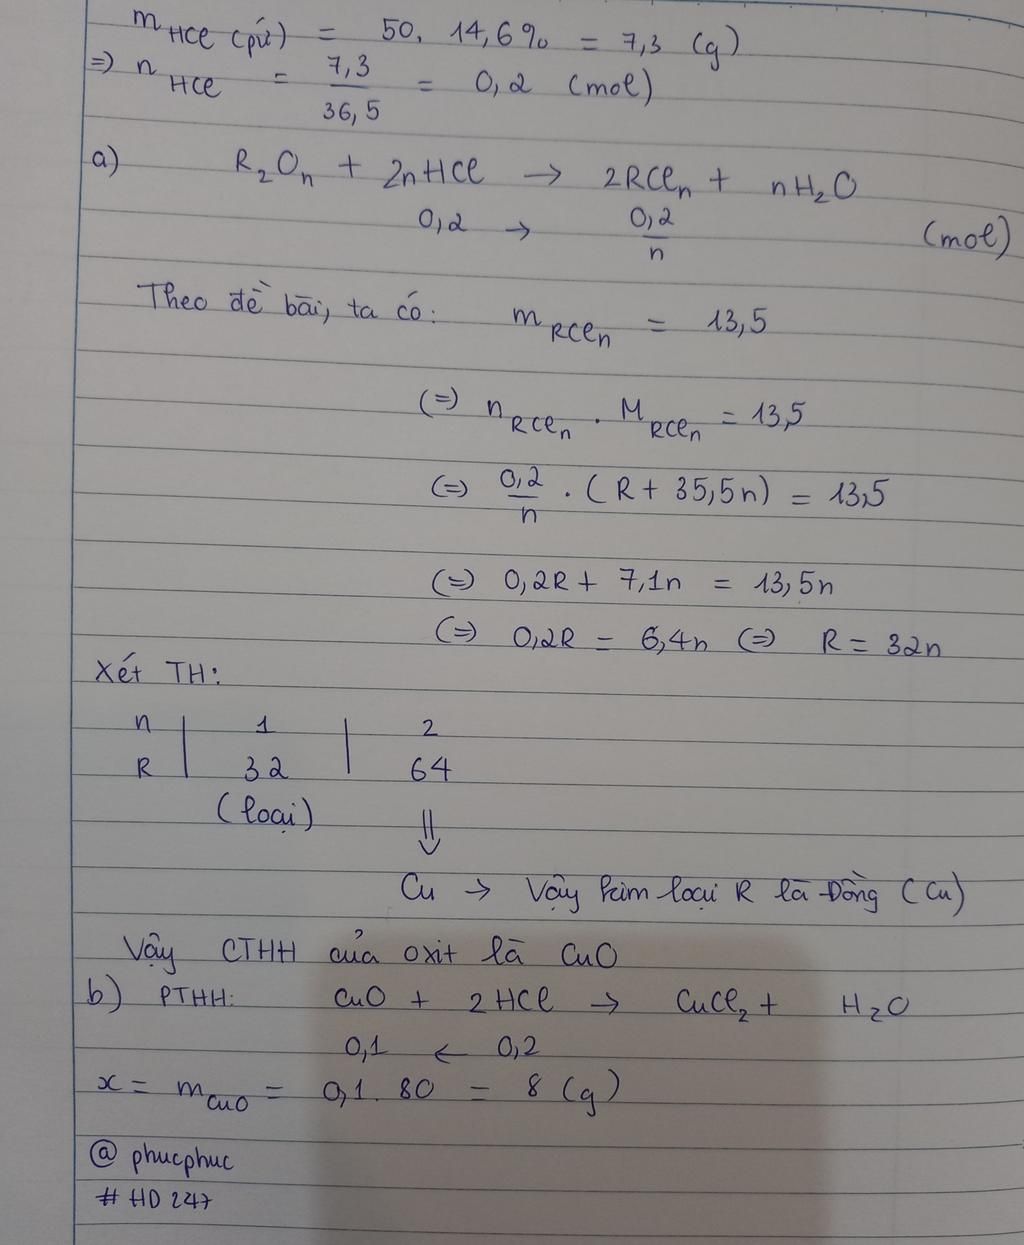 m HCl (pứ) = 50. 14,6% = 7,3 (g)
=> n HCl = 7,3/36,5 = 0,2 (mol)
a) R₂Oₙ + 2nHCl → 2RClₙ + nH₂O
0,2 → 0,2/n (mol)
Theo đề bài, ta có: m RClₙ = 13,5
(=) n RClₙ . M RClₙ = 13,5
(=) 0,2/n . (R + 35,5n) = 13,5
(=) 0,2R + 7,1n = 13,5n
(=) 0,2R = 6,4n (=) R = 32n
Xét TH:
n | 1 | 2
R | 32 | 64
(loại) ⇓
Cu → Vậy kim loại R là Đồng (Cu)
Vậy CTHH của oxit là CuO
b) PTHH: CuO + 2HCl → CuCl₂ + H₂O
0,1 ← 0,2
x = m CuO = 0,1. 80 = 8 (g)
@ phucphuc
# HD 247